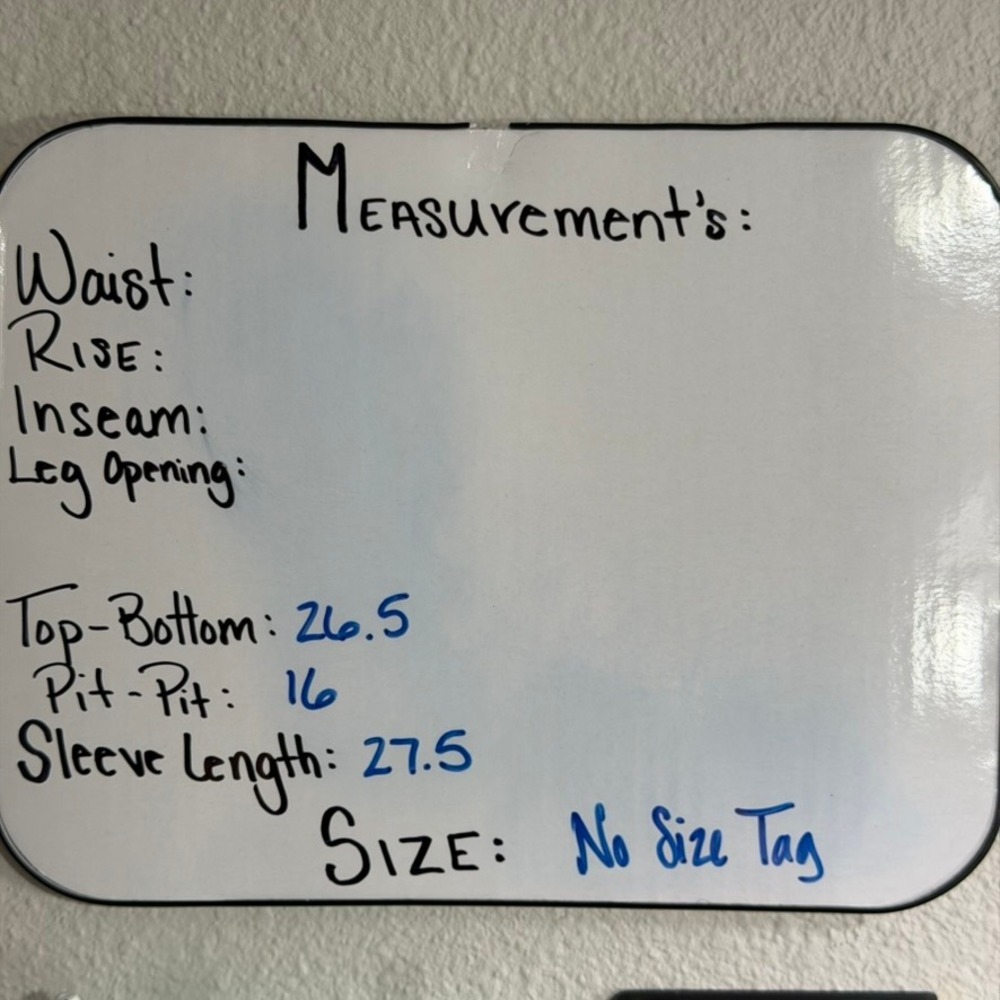 MEASurement's:
Waist:
RISE:
Inseam:
Leg Opening:
Top-Bottom: 26.5
Pit-Pit: 16
Sleeve Length: 27.5
SIZE: No Size Tag